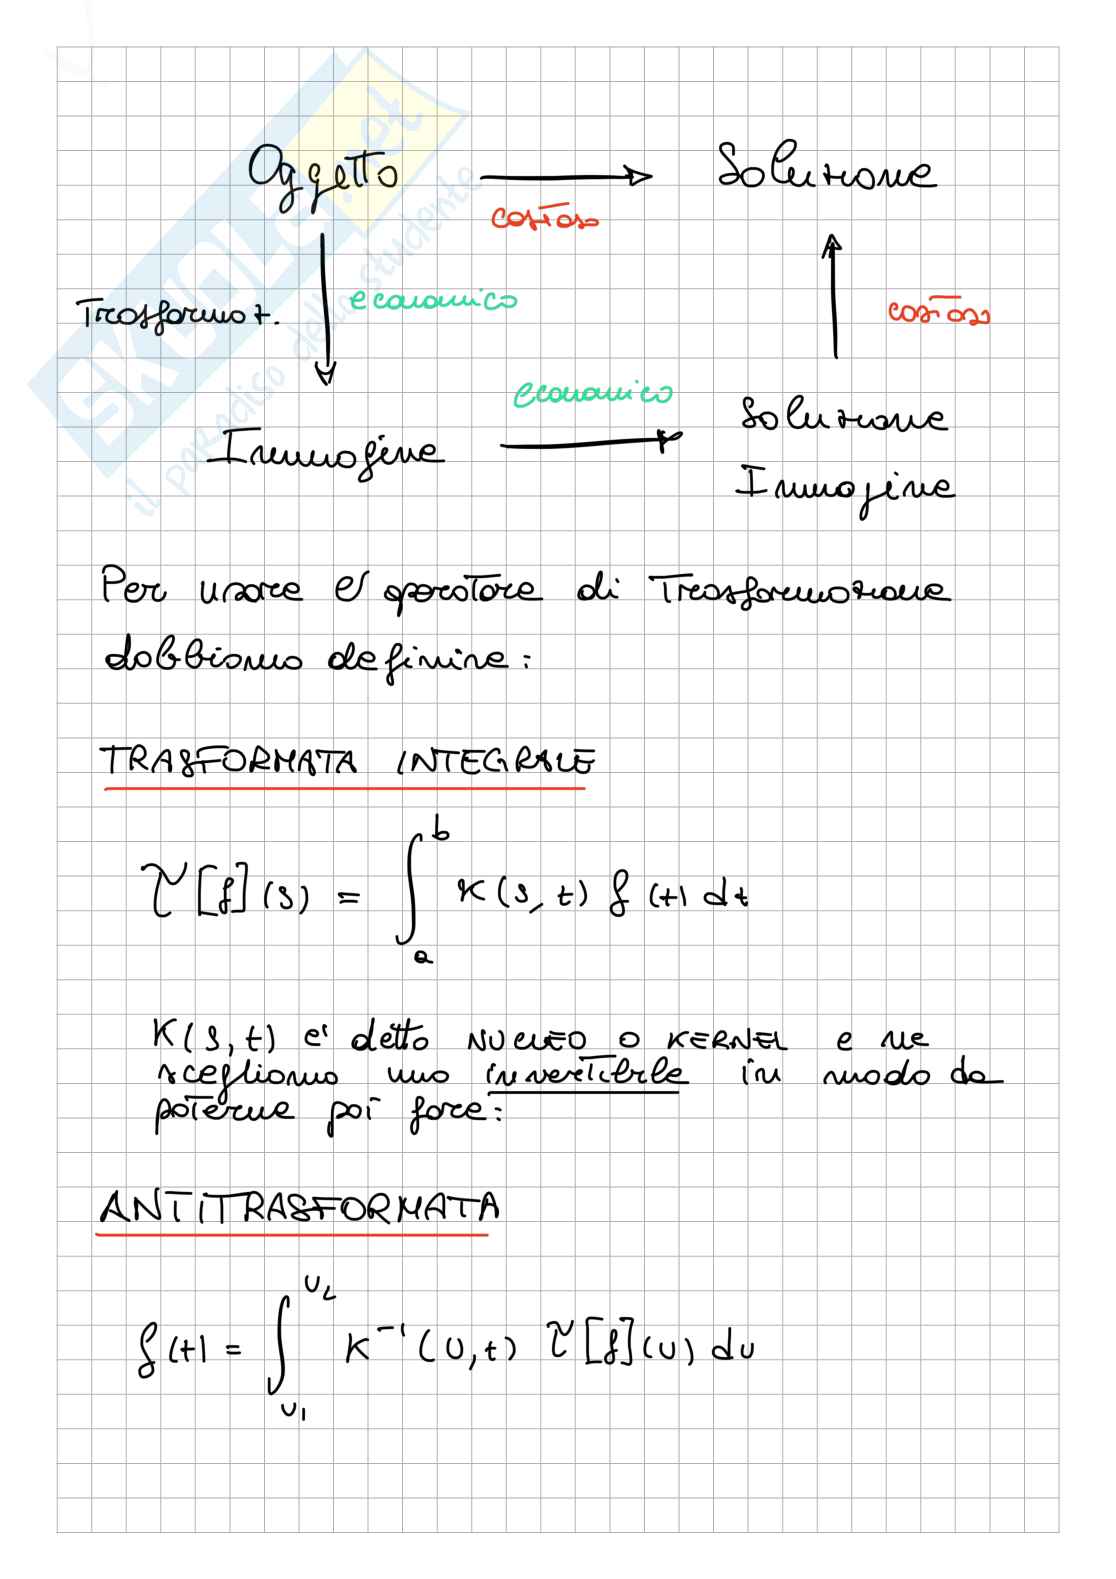 Oggetto → Soluzione
costoso
Trasformaz. economico costoso
economico
Immagine → Soluzione
Immagine
Per usare l' operatore di Trasformazione
dobbiamo definire:
TRASFORMATA INTEGRALE
τ[f](s) = ∫_a^b K(s,t) f(t) dt
K(s,t) e' detto NUCLEO O KERNEL e ne
scegliamo uno invertibile in modo da
poterne poi fare:
ANTITRASFORMATA
f(t) = ∫_{u1}^{u2} K^{-1}(u,t) τ[f](u) du
SKUOLA.net
il paradiso dello studente